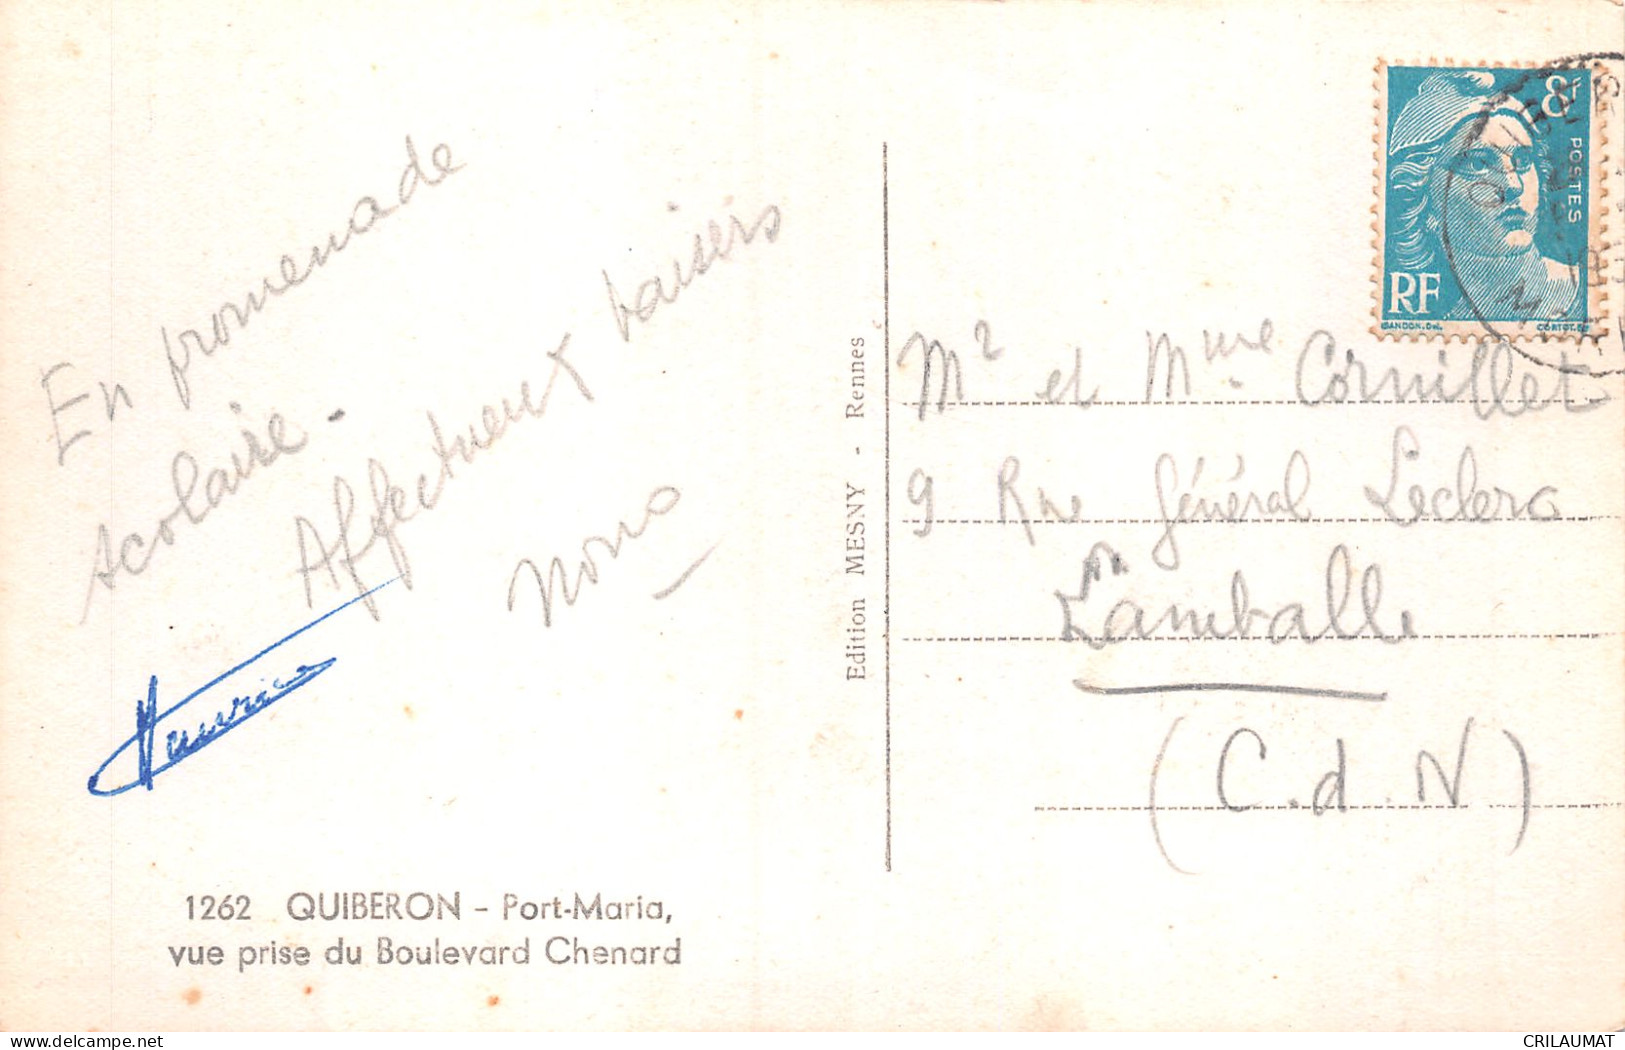 En promenade
scolaire -
Affectueux baisers
Nono
Maurice
1262 QUIBERON - Port-Maria,
vue prise du Boulevard Chenard
Edition MESNY - Rennes
8f
POSTES
RF
GANDON.Del.
CORTOT.Sc
QUIBERON
Mr et Mme Cornillet
9 Rue Général Leclerc
Lamballe
(C.d.N)
CRILAUMAT